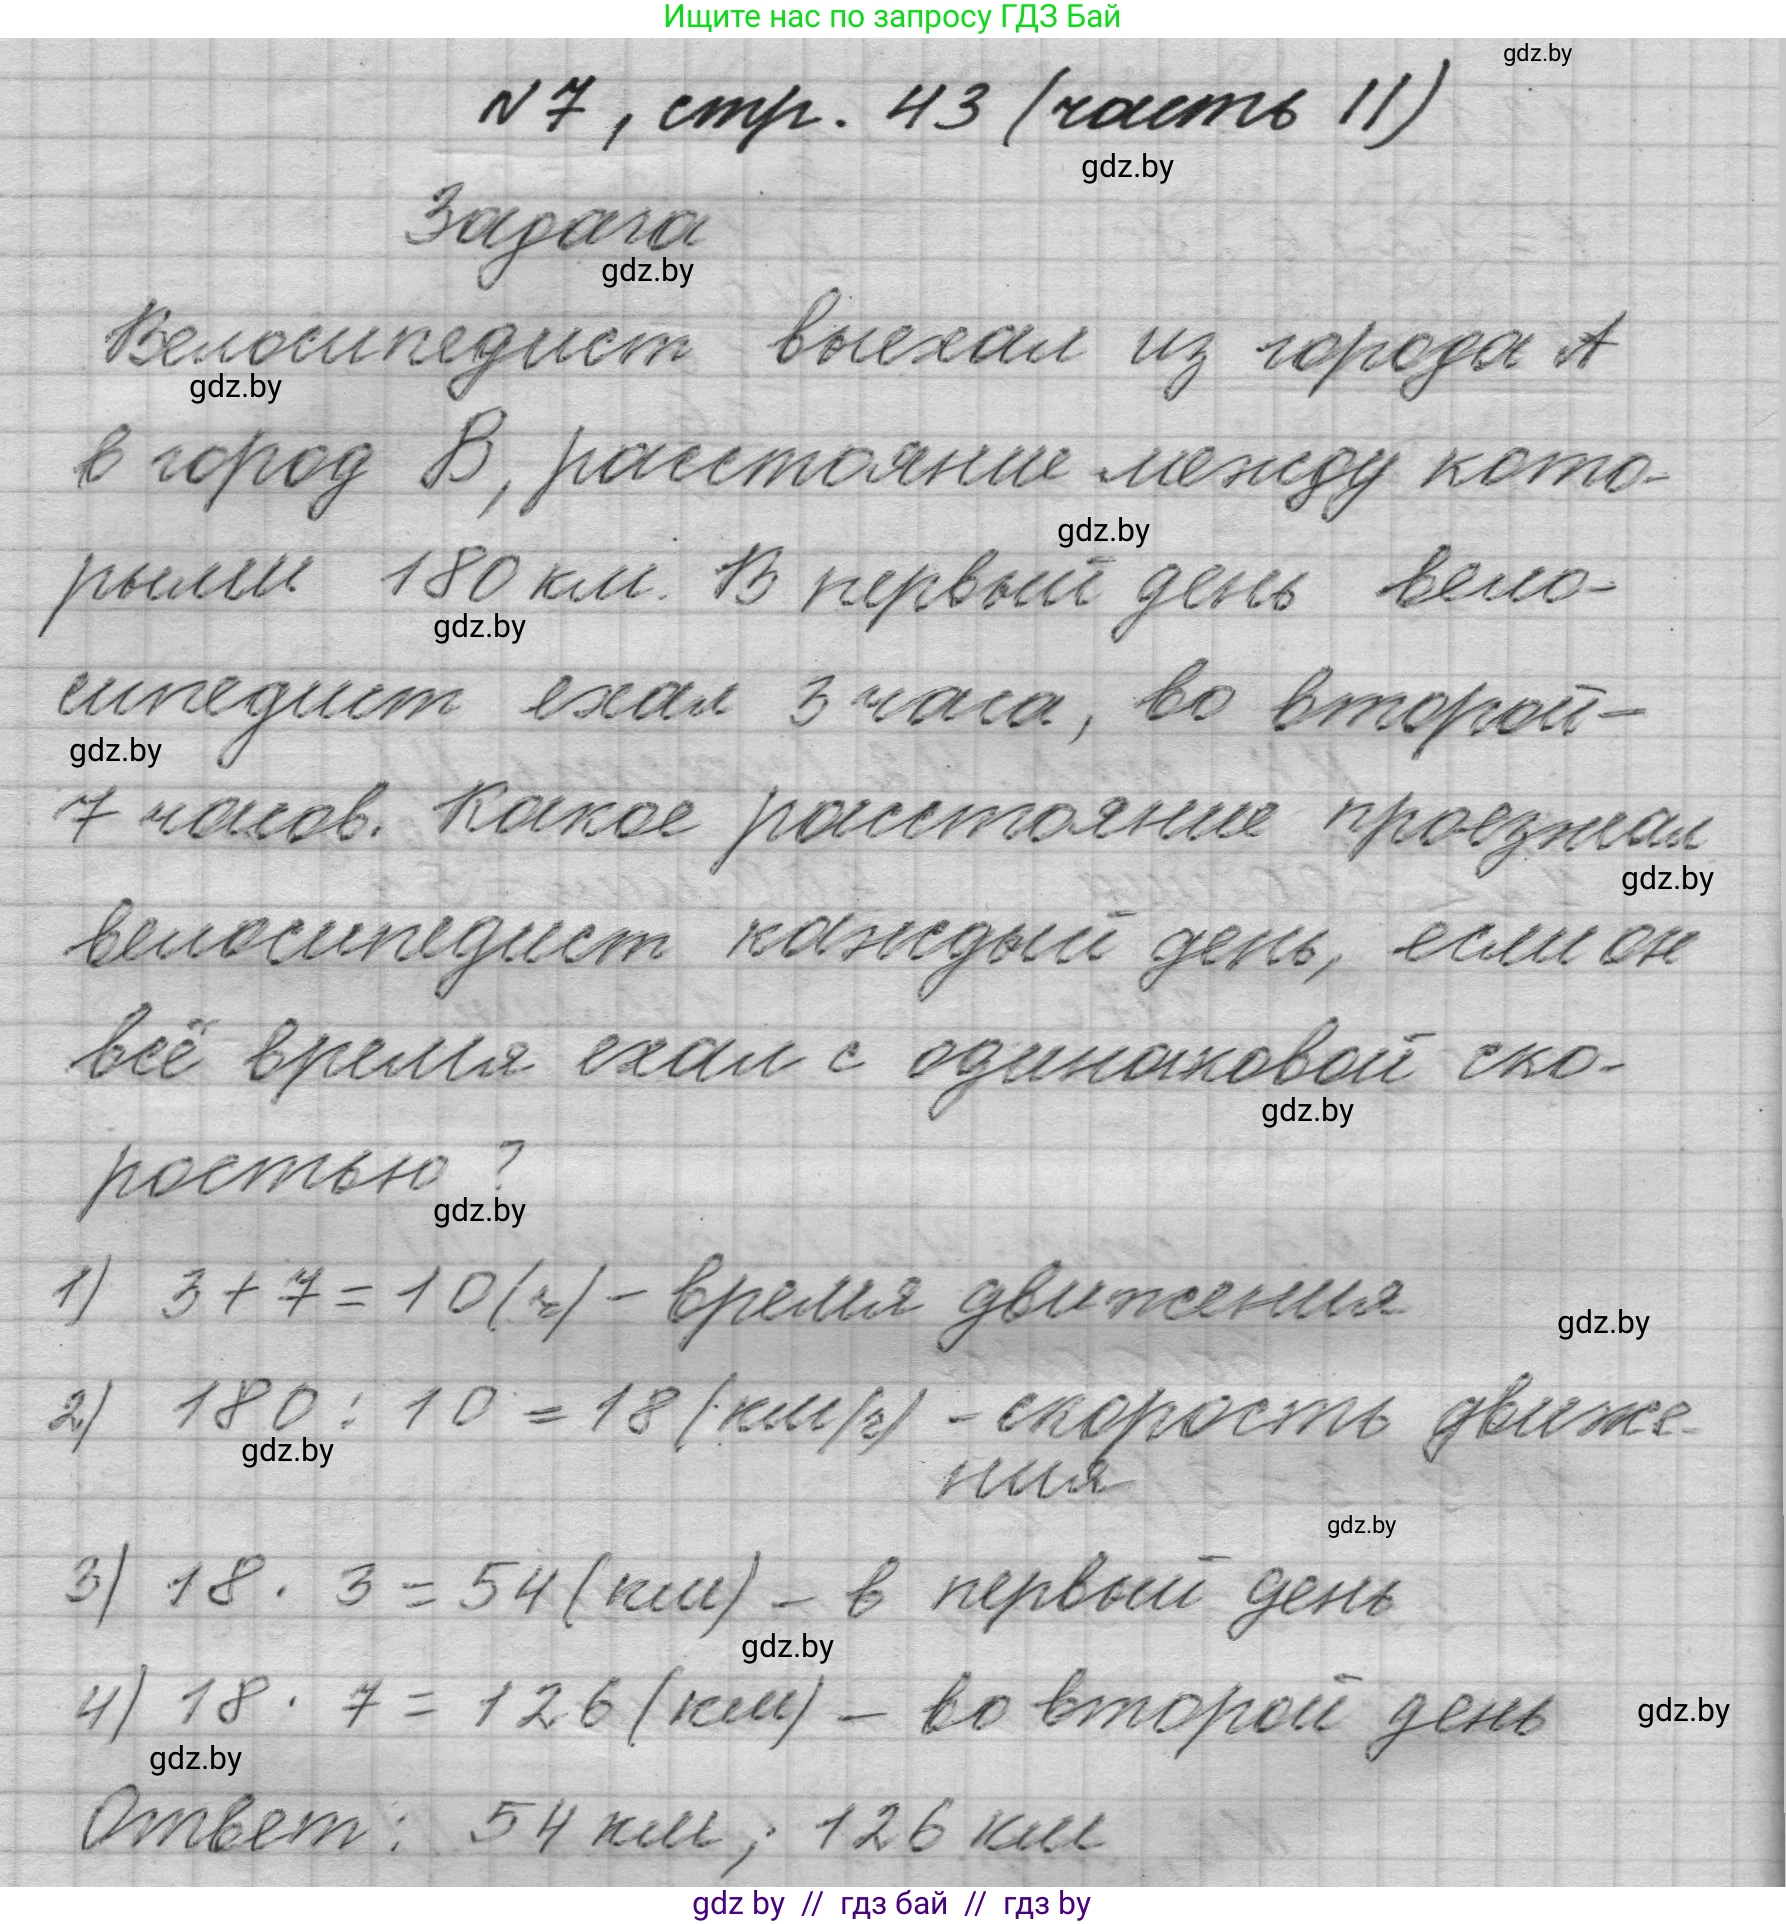 Ищите нас по запросу ГДЗ Бай
gdz.by
N7, стр. 43 (часть II)
gdz.by
Задача
gdz.by
Велосипедист выехал из города А
gdz.by
в город В, расстояние между кото-
gdz.by
рыми 180 км. В первый день вело-
gdz.by
сипедист ехал 3 часа, во второй -
gdz.by
7 часов. Какое расстояние проезжал
gdz.by
велосипедист каждый день, если он
всё время ехал с одинаковой ско-
gdz.by
ростью?
gdz.by
1) 3 + 7 = 10 (ч) - время движения
gdz.by
2) 180 : 10 = 18 (км/ч) - скорость движе-
gdz.by
ния
gdz.by
3) 18 · 3 = 54 (км) - в первый день
gdz.by
4) 18 · 7 = 126 (км) - во второй день
gdz.by
gdz.by
Ответ: 54 км; 126 км
gdz by // гдз бай // гдз by